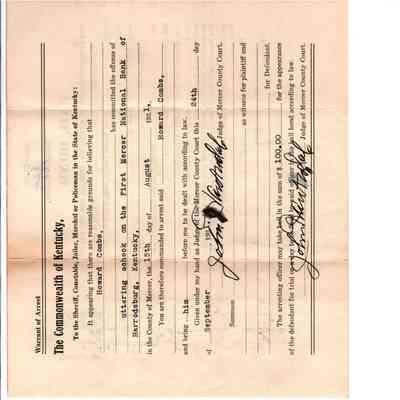 Warrant of Arrest
The Commonwealth of Kentucky,
To the Sheriff, Constable, Jailer, Marshal or Policeman in the State of Kentucky:
It appearing that there are reasonable grounds for believing that
Howard Combs,
has committed the offense of
uttering a check on the First Mercer National Bank of
Harrodsburg, Kentucky,
in the County of Mercer, the 15th day of August 1931.
You are therefore commanded to arrest said Howard Combs,
and bring him before me to be dealt with according to law.
Given under my hand as Judge of the Mercer County Court this 24th day
of September 193
Judge of Mercer County Court.
Summon as witness for plaintiff and
for Defendant.
The arresting officer may take bail in the sum of $ 100.00 for the appearance
of the defendant for trial bail bond according to law.
Judge of Mercer County Court.